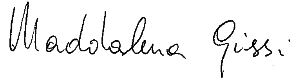 Maddalena Gissi